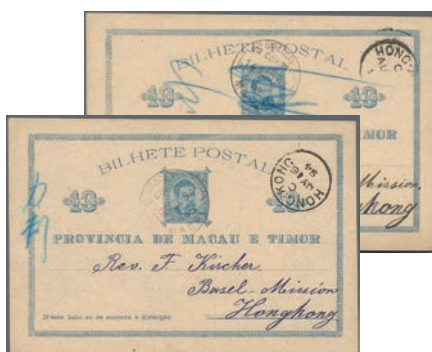 BILHETE POSTAL
10
HONG-K
C
AU
IMOR
Mission
gkong
BILHETE POSTAL
10
10
HONG KONG
C
94
PROVINCIA DE MACAU E TIMOR
Rev. F. Kircher.
Basel-Mission
Hongkong
D'este lado só se escreve a direcção